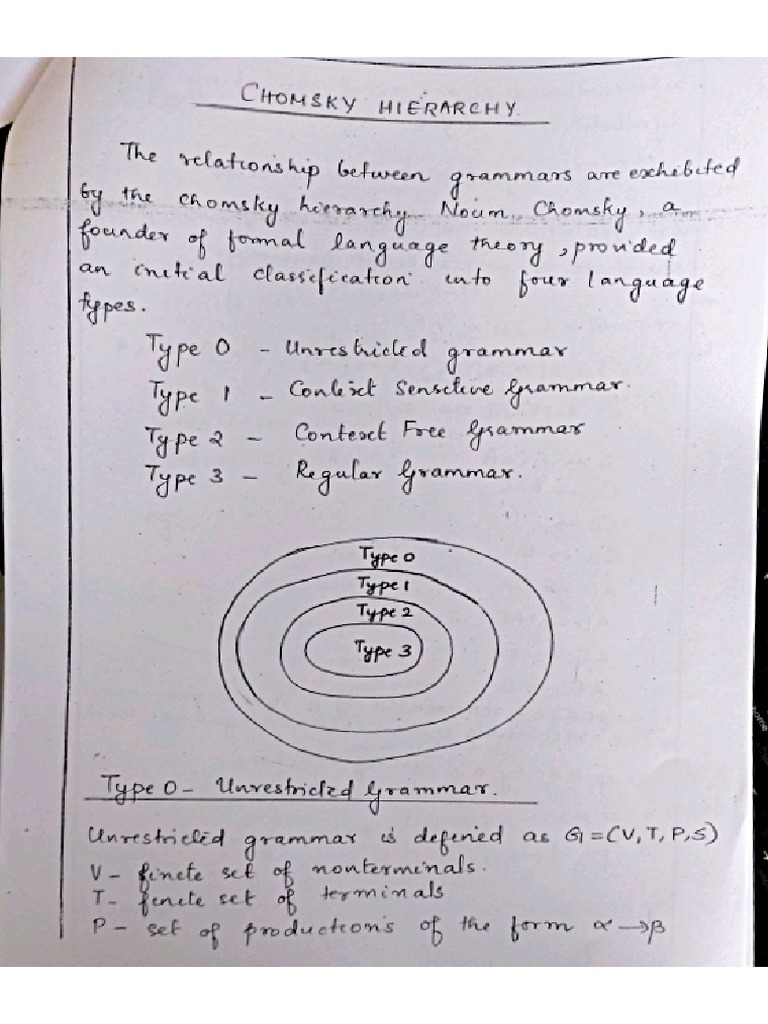 CHOMSKY HIERARCHY.
The relationship between grammars are exhibited
by the chomsky hierarchy. Noum Chomsky, a
founder of formal language theory, provided
an initial classification into four language
types.
Type 0 - Unrestricted grammar
Type 1 - Context Sensitive Grammar.
Type 2 - Context Free Grammar
Type 3 - Regular Grammar.
Type 0
Type 1
Type 2
Type 3
Type 0 - Unrestricted Grammar.
Unrestricted grammar is defined as G=(V,T,P,S)
V - finite set of nonterminals.
T - finite set of terminals
P - set of productions of the form α→β